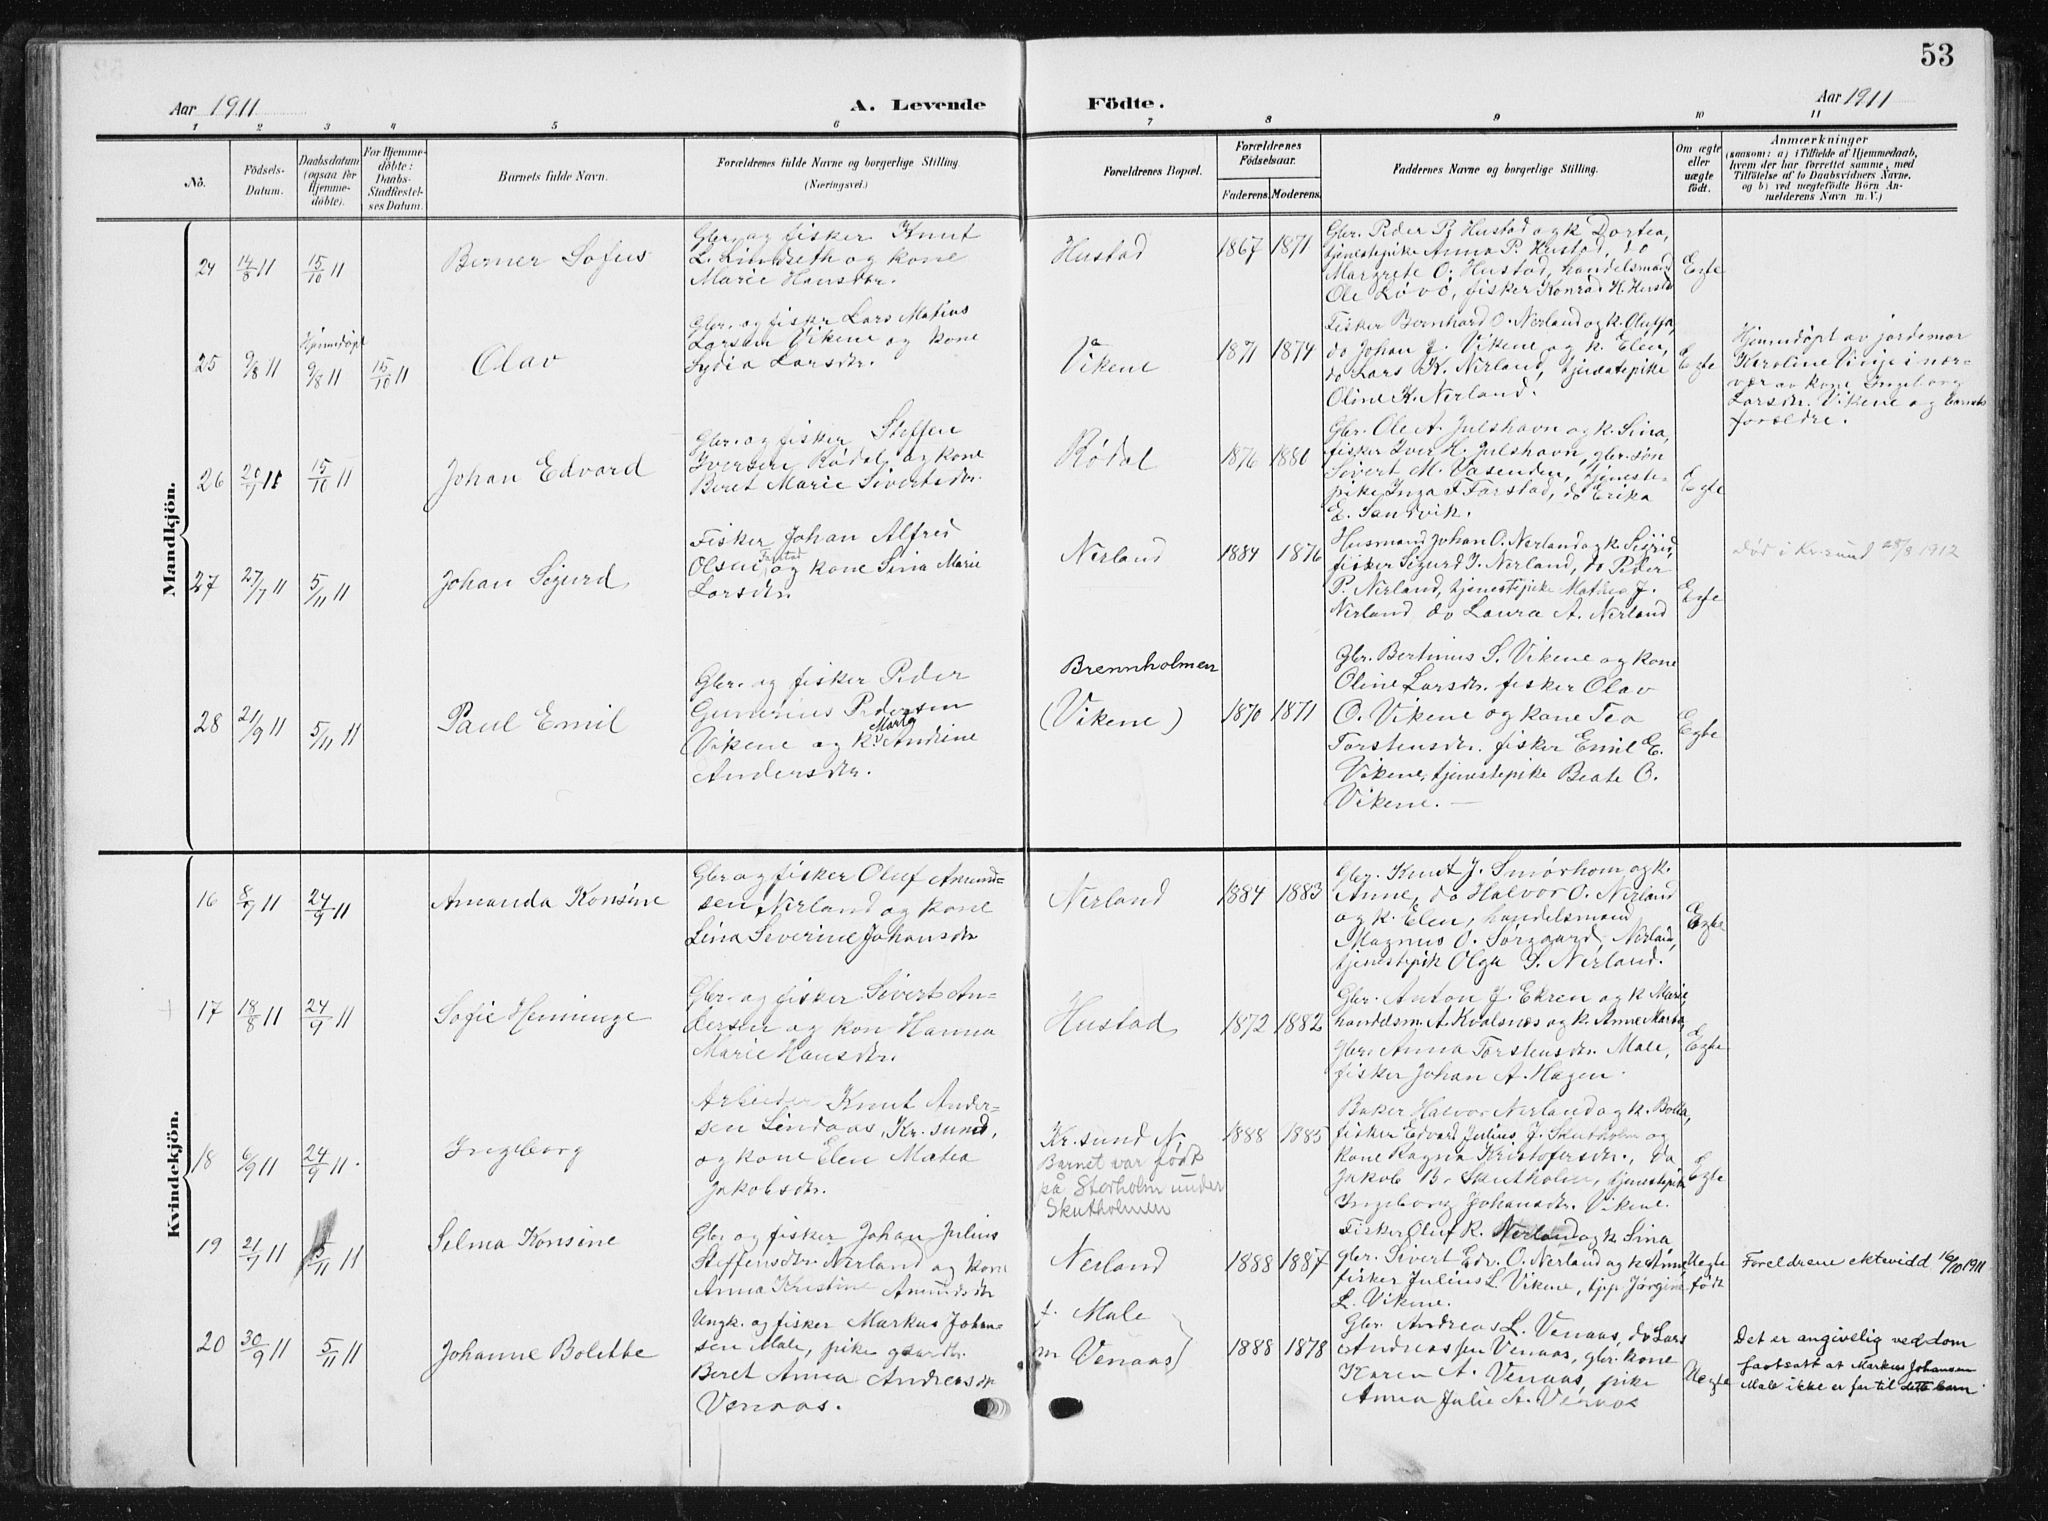 53
Aar 1911 A. Levende Födte. Aar 1911
1 2 3 4 5 6 7 8 9 10 11
No.
Födsels-
Datum.
Daabsdatum
(ogsaa for
Hjemme-
döbte).
For Hjemme-
döbte:
Daabs-
Stadfæstel-
ses Datum.
Barnets fulde Navn.
Forældrenes fulde Navne og borgerlige Stilling.
(Næringsvei.)
Forældrenes Bopæl.
Forældrenes
Fødselsaar.
Faderens. Moderens.
Faddernes Navne og borgerlige Stilling.
Om ægte
eller
uægte
födt.
Anmærkninger
(saasom: a) i Tilfælde af Hjemmedaab,
hvem der har forrettet samme, med
Tilföielse af to Daabsvidners Navne.
og b) ved uægtefödte Börn An-
melderens Navn m. V.)
Mandkjön.
24 14/8 11 15/10 11
Berner Sofus
Gbr. og fisker Knut
L. Lindseth og kone
Marie Hansdtr.
Hustad
1867 1871
Gbr. Peder P. Hustad og k. Dortea,
tjenestepike Anna P. Hustad, do
Margrete O. Hustad, handelsmand
Ole Løvö, fisker Konrad H. Hustad
Egte
25 9/8 11 Hjemmedöpt 9/8 11 15/10 11
Olav
Gbr. og fisker Lars Matias
Larsen Vikene og kone
Lydia Larsdtr.
Vikene
1871 1879
Fisker Bernhard O. Nerland og k. Olufja,
do Johan J. Vikene og k. Elen,
do Lars K. Nerland, tjenestepike
Oline K. Nerland.
Egte
Hjemmdöpt av jordemor
Karoline Viige i nær-
vær av kone Ingeborg
Larsdtr. Vikene og barnets
forældre.
26 20/9 11 15/10 11
Johan Edvard
Gbr. og fisker Steffen
Iversen Rødal og kone
Beret Marie Sivertsdtr.
Rödal
1876 1880
Gbr. Ole A. Julshavn og k. Sina,
fisker Iver H. Julshavn, gbr. sön
Sivert M. Vasenden, tjeneste-
pike Inga F. Farstad, do Erika
E. Sandvik.
Egte
27 27/7 11 5/11 11
Johan Sigurd
Fisker Johan Alfred
Olsen Farstad og kone Sina Marie
Larsdtr.
Nerland
1884 1876
Husmand Johan O. Nerland og k. Sigrid,
fisker Sigurd J. Nerland, do Peder
P. Nerland, tjenestepike Mathea J.
Nerland, do Laura A. Nerland
Egte
död i Kr.sund 28/8 1912
28 21/9 11 5/11 11
Paul Emil
Gbr. og fisker Peder
Gunerius Pedersen
Vikene og k. Marta Andrine
Andersdtr.
Brennholmen
(Vikene)
1870 1871
Gbr. Bertinus S. Vikene og kone
Oline Larsdtr. fisker Olav
O. Vikene og kone Tea
Torstensdtr. fisker Emil E.
Vikene, tjenestepike Beate O.
Vikene.
Egte
Kvindekjön.
16 8/7 11 24/9 11
Amanda Konsine
Gbr og fisker Oluf Amund-
sen Nerland og kone
Lina Severine Johansdtr
Nerland
1884 1883
Gbr. Knut J. Smörhom og k.
Anne, do Halvor O. Nerland
og k. Elen, handelsmand
Magnus O. Sørgaard, Nerland,
tjenestepik Olga S. Nerland.
Egte
17 18/8 11 24/9 11
Sofie Heminge
Gbr. og fisker Sivert An-
dersen og kon Hanna
Marie Hansdtr.
Hustad
1872 1882
Gbr. Anton J. Ekren og k. Marie,
handelsm. A. Kvalsnes og k. Anne Marta,
Gbr. Anna Torstensdtr. Male,
fisker Johan A. Hagen.
Egte
18 6/9 11 24/9 11.
Ingeborg
Arbeider Knut Ander-
sen Lindaas, Kr.sund,
og kone Elen Matea
Jakobsdtr.
Kr.sund N.
Barnet var födt
på Storholm under
Skutholmen
1888 1885
Baker Halvor Nerland og k. Bolla,
fisker Edvard Julius J. Skutholm og
kone Ragna Kristofersdtr., do
Jakob B. Skutholm, tjenestepik
Ingeborg Johansdtr. Vikene.
Egte
19 21/7 11 5/11 11
Selma Konsine
Gbr og fisker Johan Julius
Steffensdtr. Nerland og kone
Anna Kristine Amundsdtr
Nerland
1888 1887
Fisker Oluf R. Nerland og k Sina,
gbr. Sivert Edv. O. Nerland og k Anne,
fisker Julius L. Vikene, tjp. Jörgine
L. Vikene.
Uegte
födt
Foreldrene ektevidd 16/10 1911
20 30/9 11 5/11 11
Johanne Bolette
Ungk. og fisker Markus Johan-
sen Male, pike gaardtr.
Beret Anna Andreasdtr
Venaas.
f. Male
m Venaas)
1888 1878
Gbr. Andreas L. Venaas, do Lars
Andreassen Venaas, gbr. kone
Karen A. Venaas, pike
Anna Julie A. Venaas
Uegte
Det er angivelig ved dom
fastsatt at Markus Johansen
Male ikke er far til dette barn.